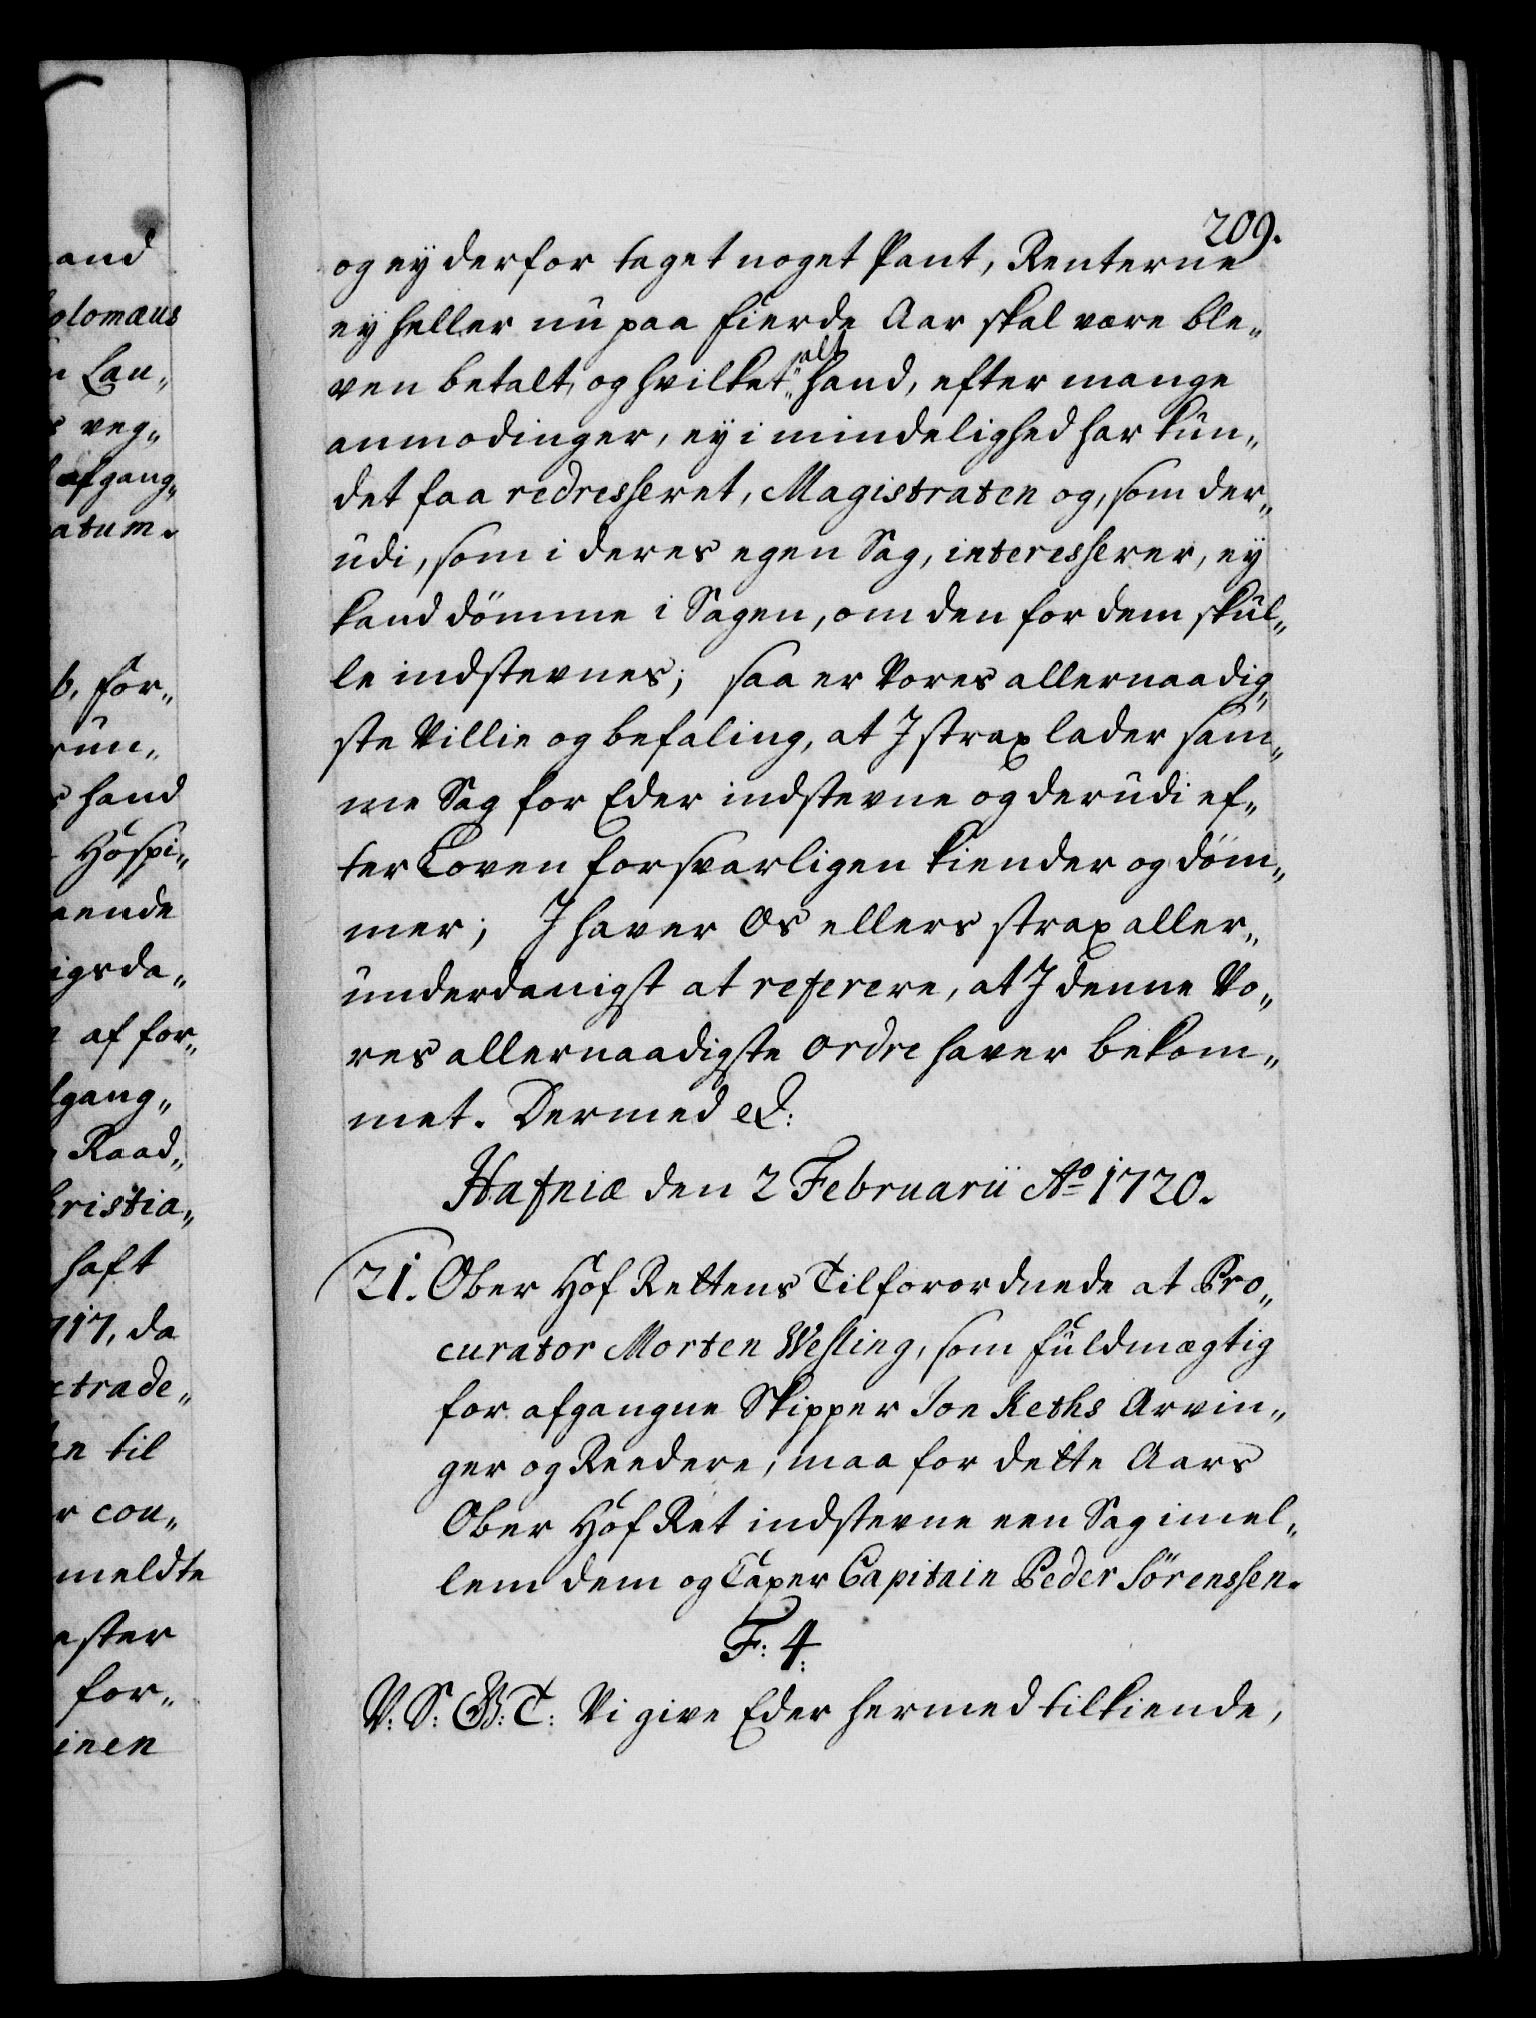 209.
og ey derfor taget noget Pant, Renterne
ey heller nu paa fierde Aar skal være ble„
ven betalt, og hvilket alt hand, efter mange
anmodinger, ey i mindelighed har kun„
det faa redresseret, Magistraten og, som der„
udi, som i deres egen Sag, interesserer, ey
kand dömme i Sagen, om den for dem skul„
le indstevnes; saa er Vores allernaadig„
ste Villie og befaling, at I strax lader sam„
me Sag for Eder indstevne og derudi ef„
ter Loven forsvarligen kiender og döm„
mer; I haver Os ellers strax aller„
underdanigst at referere, at I denne Vo„
res allernaadigste ordre haver bekom„
met. Dermed etc:
Hafniæ den 2 Februarii Ao 1720.
21. Ober Hof Rettens Tilforordnede at Pro„
curator Morten Wesling, som fuldmægtig
for afgangne Skipper Jon Keths Arvin„
ger og Reedere, maa for dette Aars
Ober Hof Ret indstevne een Sag imel„
lem dem og Caper Capitain Peder Sörenssen.
F: 4.
V: S: G: T: Vi give Eder hermed tilkiende,
and
olomæus
Lau„
veg„
afgang„
atum.
b, for„
run„
hand
Hospi„
ende
igsda„
af for„
gang„
Raad„
ristia„
haft
717, da
trade„
til
cou„
meldte
ester
for„
inen